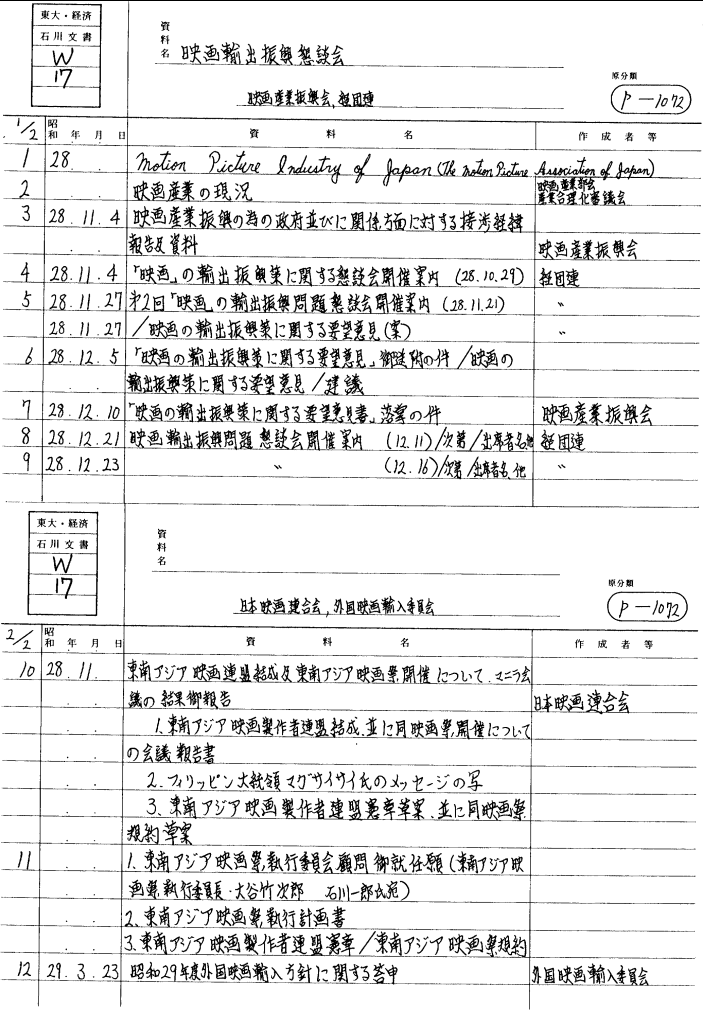 東大・経済
石川文書
W
17
資料名 映画輸出振興懇談会
映画産業振興会, 経団連
原分類
P-1072
1/2 昭和 年 月 日 資料名 作成者等
1 28. . Motion Picture Industry of Japan (The Motion Picture Association of Japan)
2 映画産業の現況 映画産業部会 産業合理化審議会
3 28.11.4 映画産業振興の為の政府並びに関係方面に対する接渉経緯
報告及資料 映画産業振興会
4 28.11.4 「映画」の輸出振興策に関する懇談会開催案内 (28.10.29) 経団連
5 28.11.27 第2回「映画」の輸出振興問題懇談会開催案内 (28.11.21) 〃
28.11.27 /映画の輸出振興策に関する要望意見(案) 〃
6 28.12.5 「映画の輸出振興策に関する要望意見」御送附の件/映画の
輸出振興策に関する要望意見/建議
7 28.12.10 「映画の輸出振興策に関する要望意見書」落掌の件 映画産業振興会
8 28.12.21 映画輸出振興問題懇談会開催案内 (12.11)/次第/出席者名他 経団連
9 28.12.23 〃 (12.16)/次第/出席者名、他 〃
東大・経済
石川文書
W
17
資料名
日本映画連合会, 外国映画輸入委員会
原分類
P-1072
2/2 昭和 年 月 日 資料名 作成者等
10 28.11. 東南アジア映画連盟結成及東南アジア映画祭開催について、マニラ会
議の結果御報告 日本映画連合会
1.東南アジア映画製作者連盟結成、並に同映画祭開催について
の会議報告書
2.フィリッピン大統領マグサイサイ氏のメッセージの写
3.東南アジア映画製作者連盟憲章草案、並に同映画祭
規約草案
11 1.東南アジア映画祭執行委員会顧問御就任願(東南アジア映
画祭執行委員長・大谷竹次郎 石川一郎氏宛)
2.東南アジア映画祭執行計画書
3.東南アジア映画製作者連盟憲章/東南アジア映画祭規約
12 29.3.23 昭和29年度外国映画輸入方針に関する答申 外国映画輸入委員会